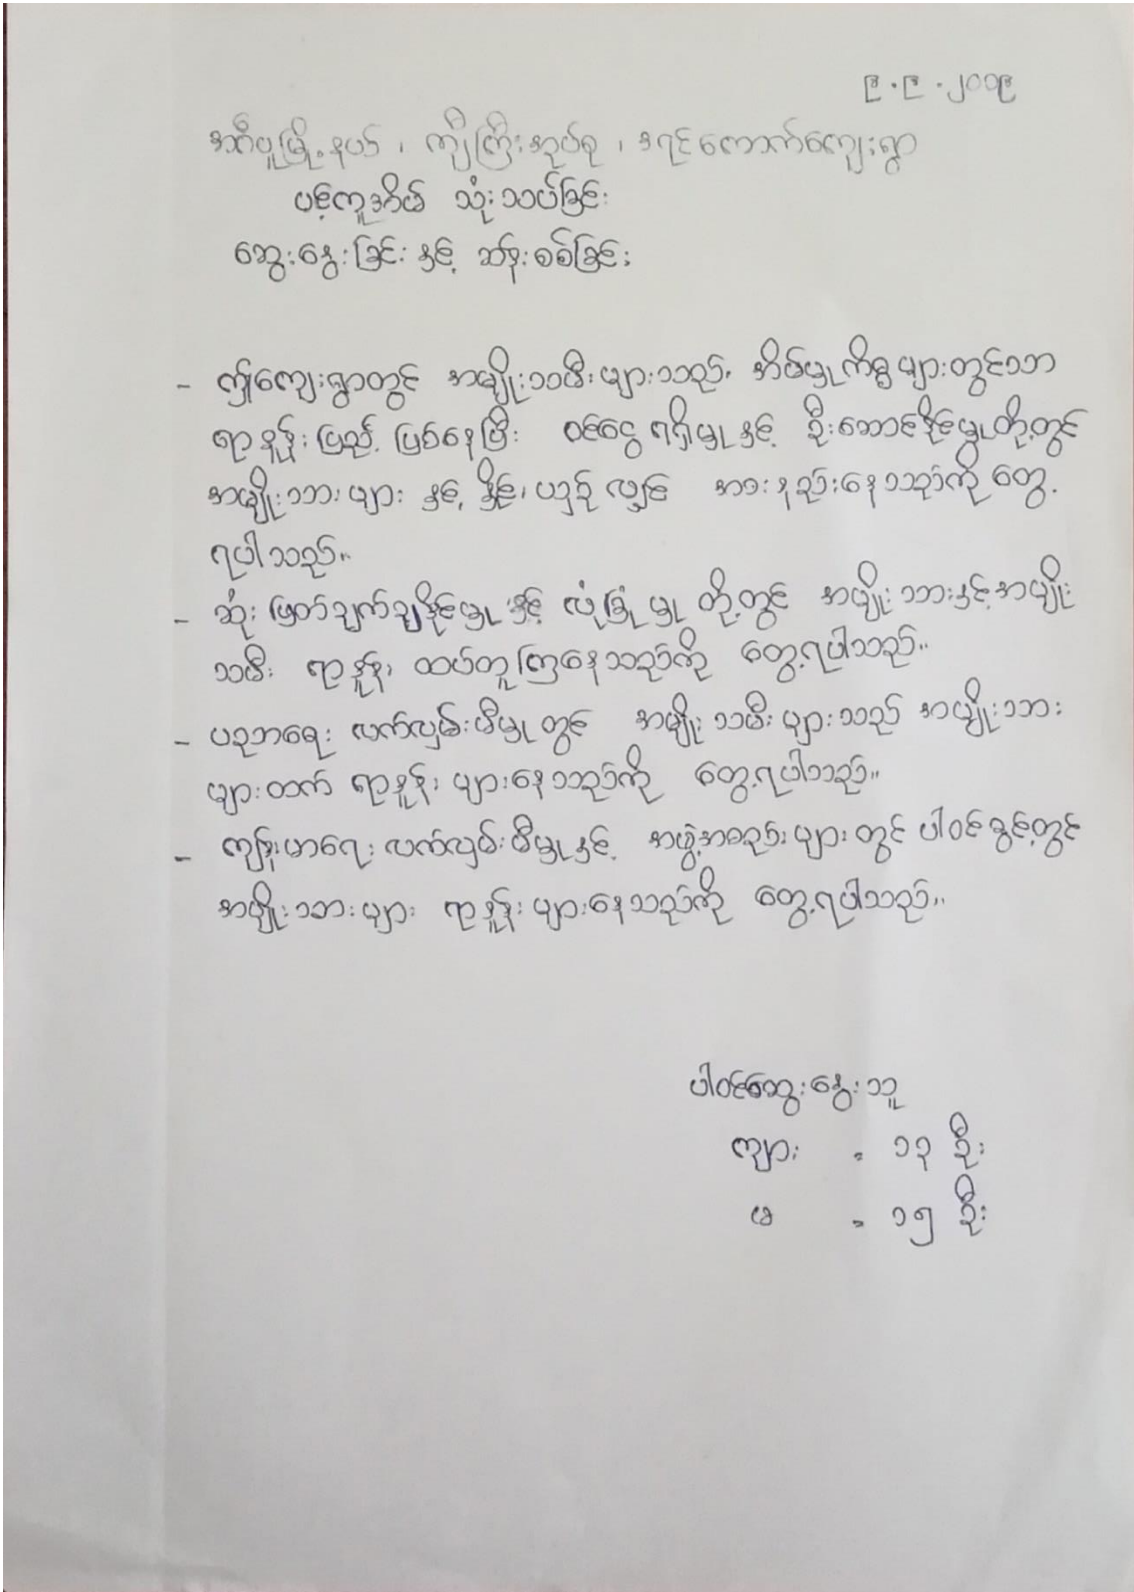 ၉.၉.၂၀၁၉
အင်္ဂပူမြို့နယ်၊ ကျီကြီးအုပ်စု၊ ဒရင်ကောက်ကျေးရွာ
ပင့်ကူအိမ် သုံးသပ်ခြင်း
ဆွေးနွေးခြင်းနှင့် ဆန်းစစ်ခြင်း
- ဤကျေးရွာတွင် အမျိုးသမီးများသည်၊ အိမ်မှုကိစ္စများတွင်သာ
ရာနှုန်းပြည့် ဖြစ်နေပြီး ဝင်ငွေရရှိမှုနှင့် ဦးဆောင်နိုင်မှုတို့တွင်
အမျိုးသားများ နှင့် နှိုင်းယှဉ်လျှင် အားနည်းနေသည်ကို တွေ့
ရပါသည်။
- ဆုံးဖြတ်ချက်ချနိုင်မှုနှင့် လုံခြုံမှုတို့တွင် အမျိုးသားနှင့်အမျိုး
သမီး ရာနှုန်း ထပ်တူကြနေသည်ကို တွေ့ရပါသည်။
- ပညာရေး လက်လှမ်းမီမှုတွင် အမျိုးသမီးများသည် အမျိုးသား
များထက် ရာနှုန်း များနေသည်ကို တွေ့ရပါသည်။
- ကျန်းမာရေး လက်လှမ်းမီမှုနှင့် အဖွဲ့အစည်းများတွင် ပါဝင်ခွင့်တွင်
အမျိုးသားများ ရာနှုန်းများနေသည်ကို တွေ့ရပါသည်။
ပါဝင်ဆွေးနွေးသူ
ကျား = ၁၃ ဦး
မ = ၁၅ ဦး